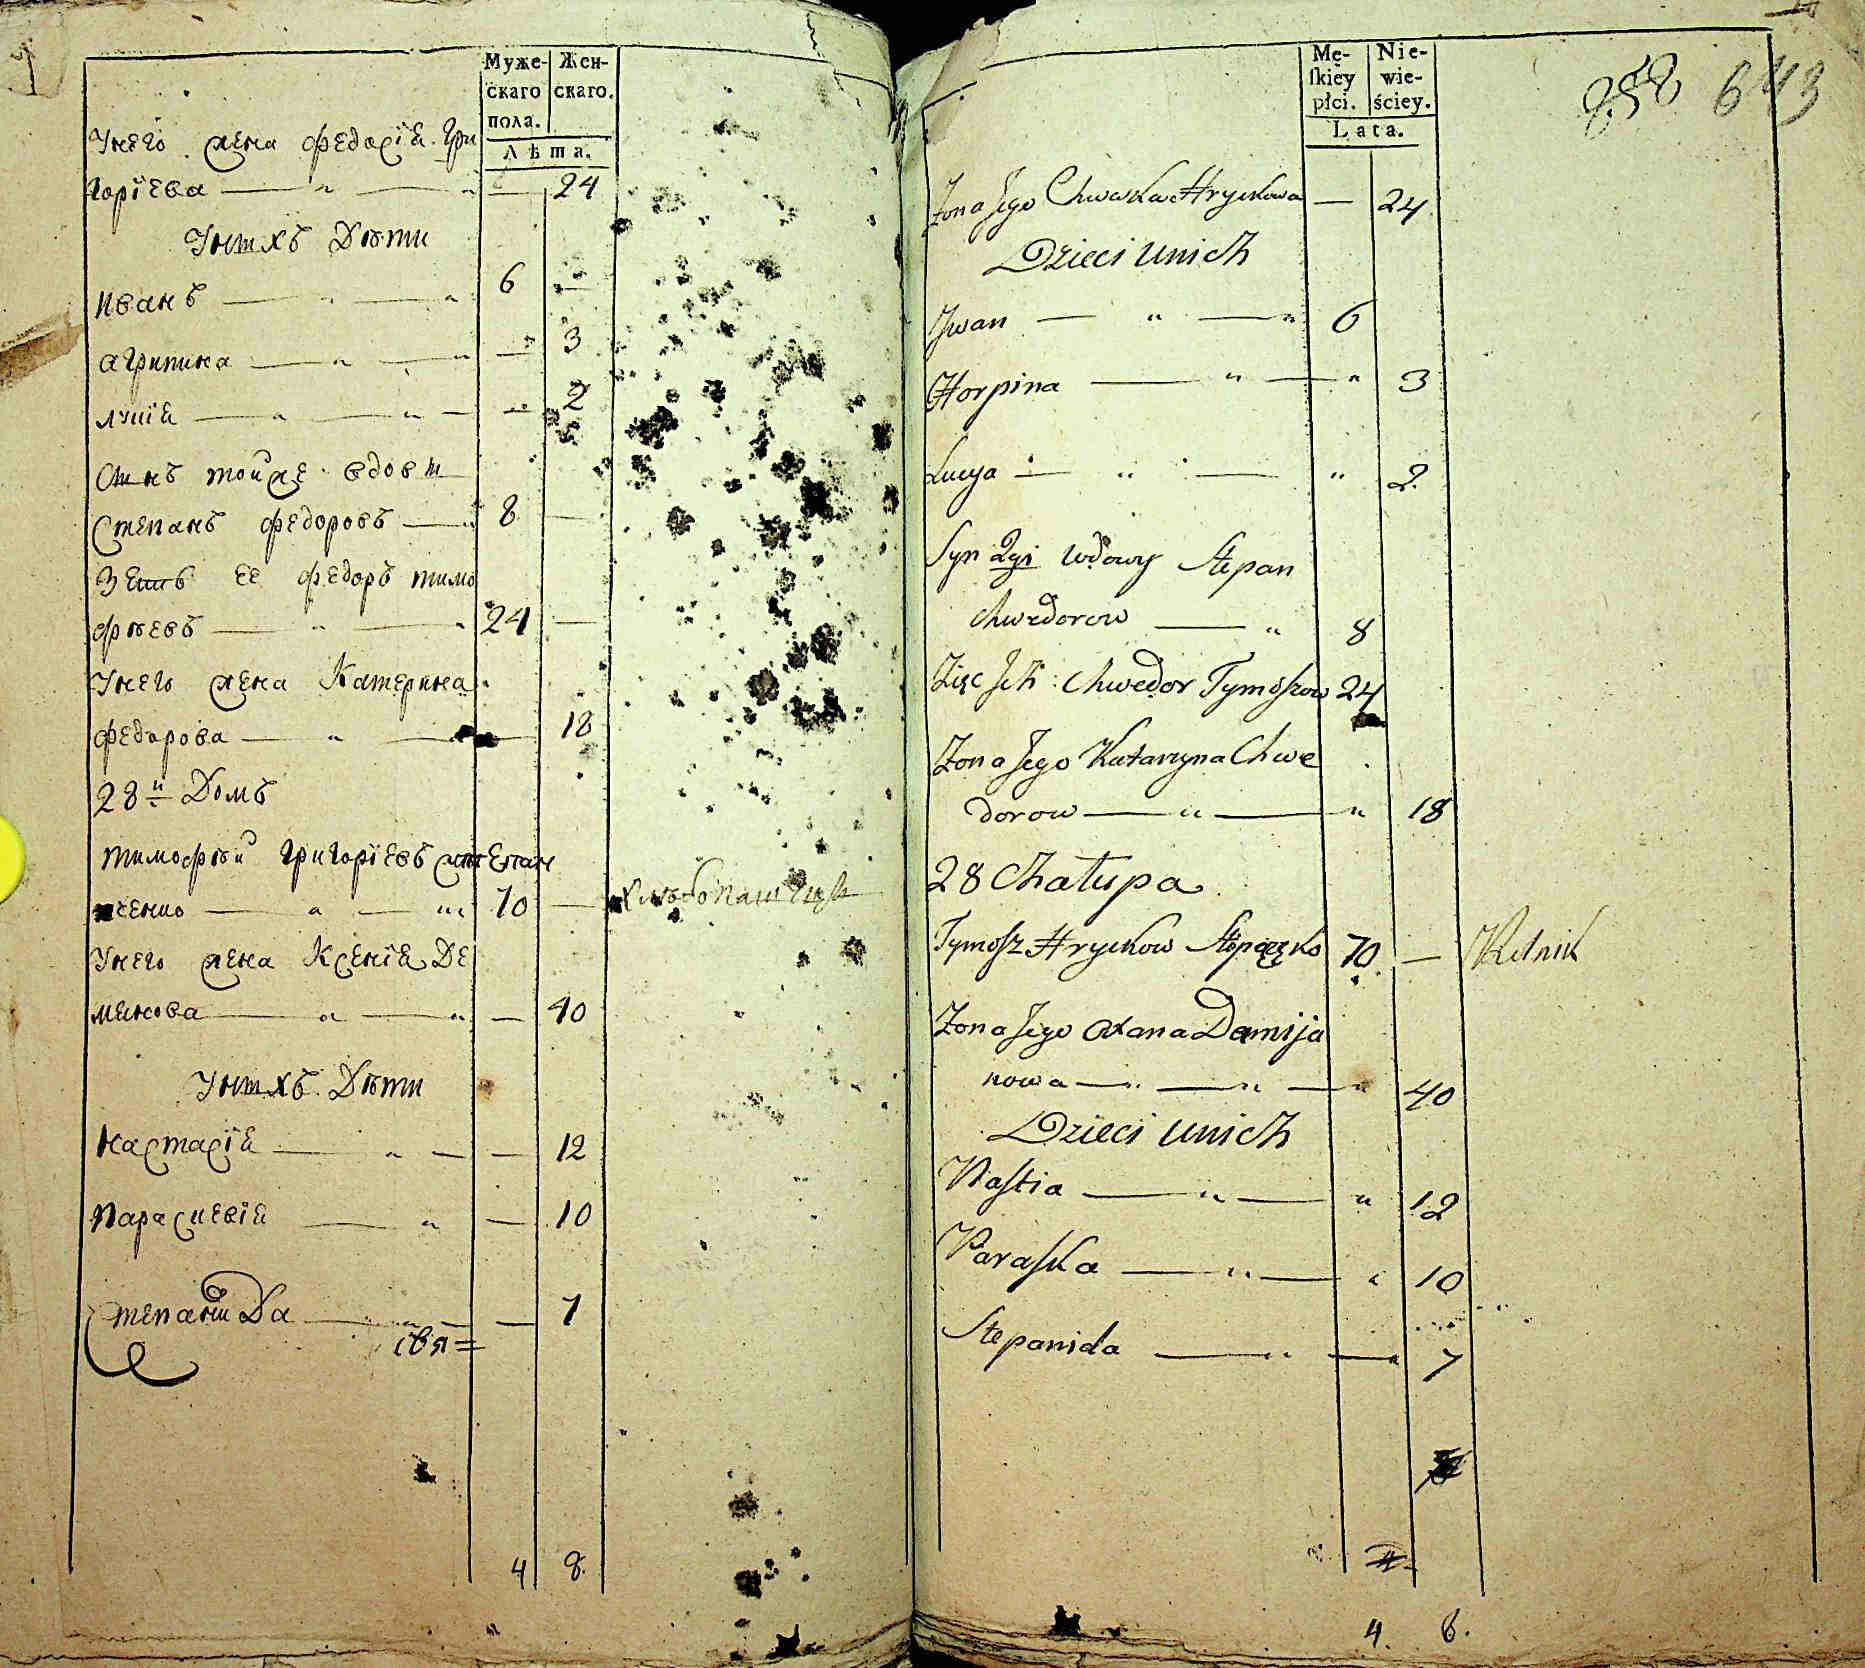 Муже-
скаго
пола.
Жен-
скаго.
Лѣта.
Унего жена Федосїя Гри
горїева — " — " — 24
Унихъ Дѣти
Иванъ — " — " 6 —
Агрипина — " — " — 3
Луція — " — " — — 2
Сынъ тойже вдовы
Степанъ Федоровъ — " 8 —
Зеть ее Федоръ тимо
фѣевъ — " — " 24 —
Унего жена Катерина
Федорова — " — — 18
28й Домъ
Тимофѣй Григорїевъ степан
ченко — " — " 70 — хлѣбопашецъ
Унего жена Ксенїя Де
мянова — " — " — 40
Унихъ Дѣти
Настасїя — " — — 12
Параскевїя — " — 10
Степанида — " — — 7
4 8.
Mę-
skiey
płci.
Nie-
wie-
ściey.
Lata.
258 643
Żona Jego Chweska Hryckowa — 24
Dzieci unich
Jwan — " — " 6
Horpina — " — " 3
Lucya — " — " 2
Syn 2gi wdowy Stepan
Chwedorow — " 8
Zięc Jeh: Chwedor Tymoszow 24
Żona Jego Katarzyna Chwe
dorow — " — " 18
28 Chałupa
Tymosz Hryckow Stepaczko 70 — Rolnik
Żona Jego Oxana Demija
nowa — " — " — " 40
Dzieci unich
Nastia — " — " 12
Paraska — " — " 10
Stepanida — " — " 7
4. 8.